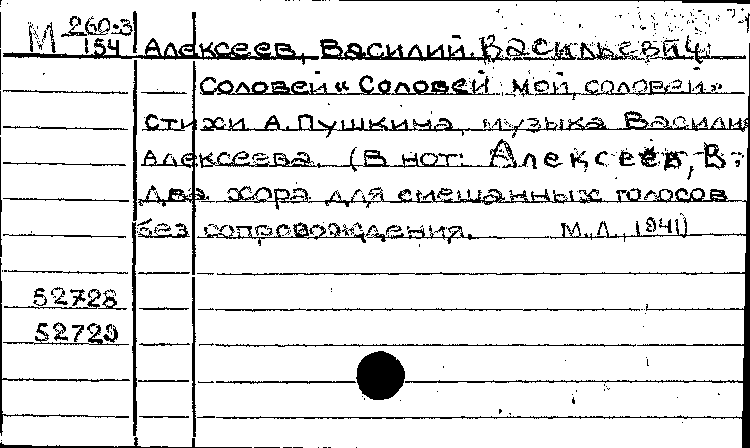 М 260-3/154 Алексеев, Василий Васильевич
Соловей "Соловей мой, соловей"
Стихи А. Пушкина, музыка Василия
Алексеева. (В нот: Алексеев, В.
Два хора для смешанных голосов
без сопровождения. М., Л., 1941)
52728
52729